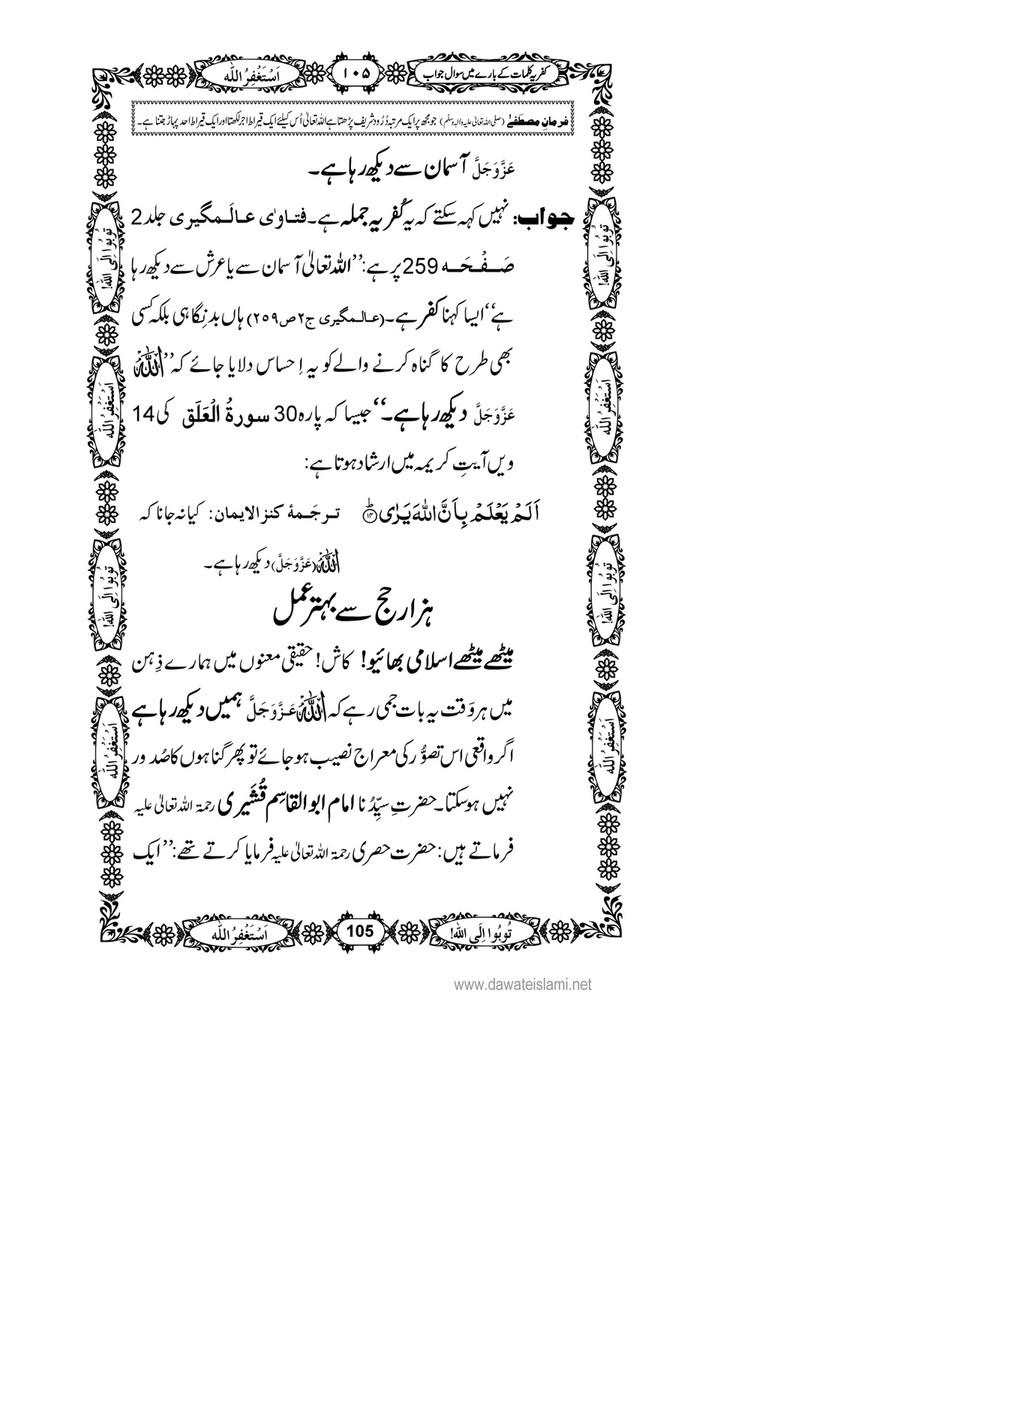 کفریہ کلمات کے بارے میں سوال جواب
۱۰۵
اَسْتَغْفِرُ اللّٰه
فرمانِ مصطفےٰ (صلی اللہ تعالیٰ علیہ والہ وسلم) جو مجھ پر ایک مرتبہ دُرُود شریف پڑھتا ہے اللہ تعالیٰ اُس کیلئے ایک قیراط اجر لکھتا اور ایک قیراط احد پہاڑ جتنا ہے۔
عَزَّوَجَلَّ آسمان سے دیکھ رہا ہے۔
جواب: نہیں کہہ سکتے کہ یہ کُفریہ جملہ ہے۔ فتاویٰ عالَمگیری جلد 2
صَفْحَہ 259 پر ہے: ’’اللہ تعالیٰ آسمان سے یا عرش سے دیکھ رہا
ہے‘‘ ایسا کہنا کفر ہے۔ (عالمگیری ج۲ ص۲۵۹) ہاں بدنِگاہی بلکہ کسی
بھی طرح کا گناہ کرنے والے کو یہ اِحساس دلایا جائے کہ ’’اللہ
عَزَّوَجَلَّ دیکھ رہا ہے۔‘‘ جیسا کہ پارہ 30 سورۃُ الْعَلَق کی 14
ویں آیتِ کریمہ میں ارشاد ہوتا ہے:
اَلَمْ یَعْلَمْ بِاَنَّ اللّٰهَ یَرٰی ﴿۱۴﴾ ترجَمۂ کنزالایمان: کیا نہ جانا کہ
اللہ (عَزَّوَجَلَّ) دیکھ رہا ہے۔
ہزار حج سے بہتر عمل
میٹھے میٹھے اسلامی بھائیو! کاش! حقیقی معنوں میں ہمارے ذِہن
میں ہر وَقت یہ بات جمی رہے کہ اللہ عَزَّوَجَلَّ ہمیں دیکھ رہا ہے
اگر واقعی اس تصوُّر کی معراج نصیب ہو جائے تو پھر گناہوں کا صُدور
نہیں ہو سکتا۔ حضرتِ سیِّدُنا امام ابو القاسِم قُشَیری رحمۃ اللہ تعالیٰ علیہ
فرماتے ہیں: حضرت حصری رحمۃ اللہ تعالیٰ علیہ فرمایا کرتے تھے: ’’ایک
تُوبُوا اِلَی اللّٰه!
اَسْتَغْفِرُ اللّٰه
تُوبُوا اِلَی اللّٰه!
اَسْتَغْفِرُ اللّٰه
تُوبُوا اِلَی اللّٰه!
اَسْتَغْفِرُ اللّٰه
تُوبُوا اِلَی اللّٰه!
اَسْتَغْفِرُ اللّٰه
تُوبُوا اِلَی اللّٰه!
105
اَسْتَغْفِرُ اللّٰه
www.dawateislami.net